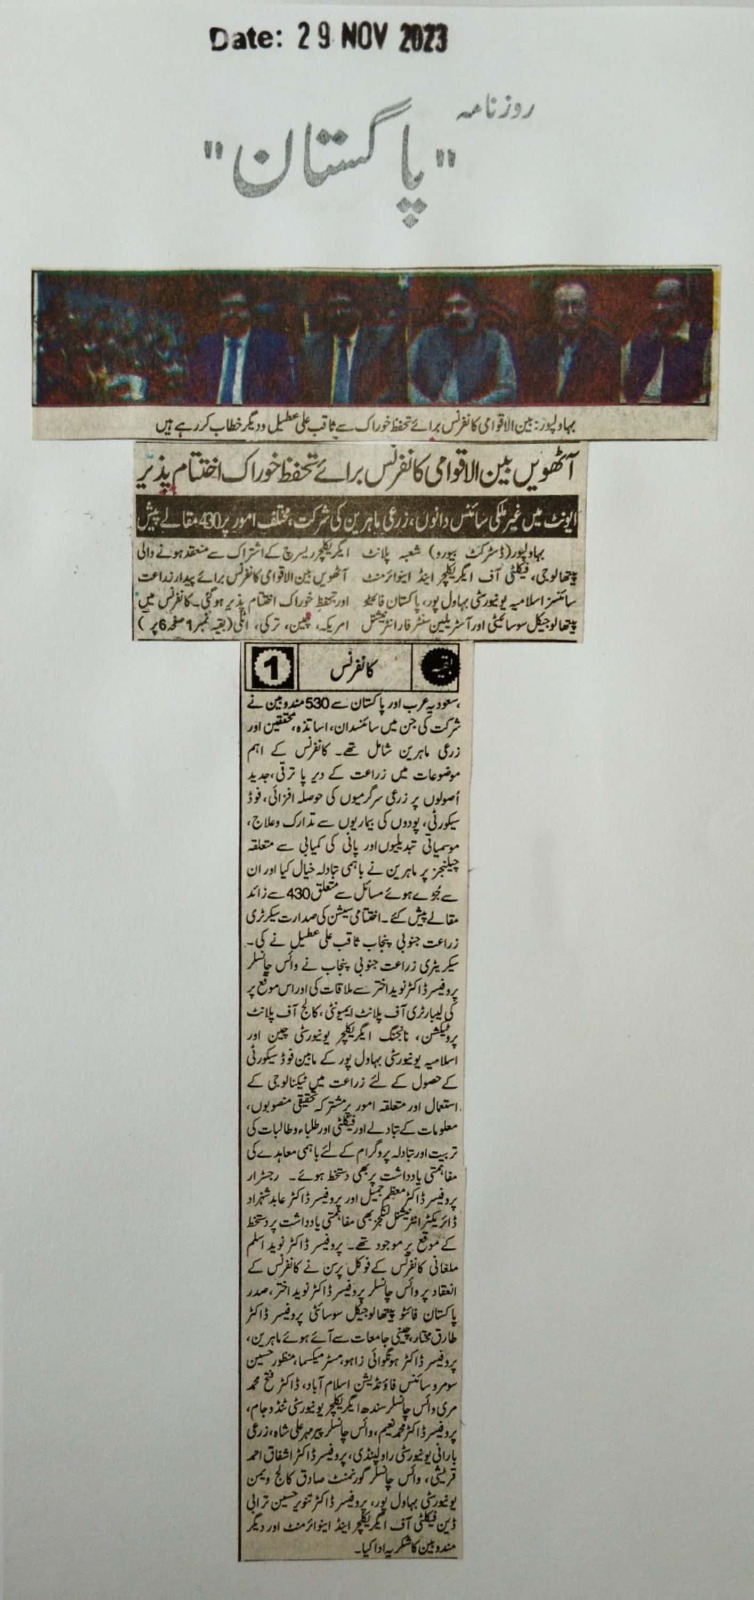 Date: 29 NOV 2023
روزنامہ
"پاکستان"
بہاولپور: بین الاقوامی کانفرنس برائے تحفظ خوراک سے ثاقب علی عطیل و دیگر خطاب کر رہے ہیں
آٹھویں بین الاقوامی کانفرنس برائے تحفظ خوراک اختتام پذیر
ایونٹ میں غیر ملکی سائنس دانوں، زرعی ماہرین کی شرکت، مختلف امور پر 430 مقالے پیش
بہاولپور (ڈسٹرکٹ بیورو) شعبہ پلانٹ
پیتھالوجی، فیکلٹی آف ایگریکلچر اینڈ اینوائرمنٹ
سائنسز اسلامیہ یونیورسٹی بہاول پور، پاکستان فائٹو
پیتھالوجیکل سوسائٹی اور آسٹریلین سنٹر فار انٹرنیشنل
ایگریکلچر ریسرچ کے اشتراک سے منعقد ہونے والی
آٹھویں بین الاقوامی کانفرنس برائے پیدار زراعت
اور تحفظ خوراک اختتام پذیر ہوگئی۔ کانفرنس میں
امریکہ، چین، ترکی، اٹلی (بقیہ نمبر 1 صفحہ 6 پر)
بقیہ کانفرنس 1
،سعودیہ عرب اور پاکستان سے 530 مندوبین نے
شرکت کی جن میں سائنسدان، اساتذہ، محققین اور
زرعی ماہرین شامل تھے۔ کانفرنس کے اہم
موضوعات میں زراعت کے دیر پا ترقی، جدید
اُصولوں پر زرعی سرگرمیوں کی حوصلہ افزائی، فوڈ
سیکورٹی، پودوں کی بیماریوں سے تدارک و علاج،
موسمیاتی تبدیلیوں اور پانی کی کمیابی سے متعلقہ
چیلنجز پر ماہرین نے باہمی تبادلہ خیال کیا اور ان
سے جُڑے ہوئے مسائل سے متعلق 430 سے زائد
مقالے پیش کئے۔ اختتامی سیشن کی صدارت سیکرٹری
زراعت جنوبی پنجاب ثاقب علی عطیل نے کی۔
سیکریٹری زراعت جنوبی پنجاب نے وائس چانسلر
پروفیسر ڈاکٹر نوید اختر سے ملاقات کی اور اس موقع پر
کی لیبارٹری آف پلانٹ ایمیونٹی، کالج آف پلانٹ
پروٹیکشن، نانجنگ ایگریکلچر یونیورسٹی چین اور
اسلامیہ یونیورسٹی بہاول پور کے مابین فوڈ سیکورٹی
کے حصول کے لئے زراعت میں ٹیکنالوجی کے
استعمال اور متعلقہ امور پر مشترکہ تحقیقی منصوبوں،
معلومات کے تبادلے اور فیکلٹی اور طلباء و طالبات کی
تربیت اور تبادلہ پروگرام کے لئے باہمی معاہدے کی
مفاہمتی یادداشت پر بھی دستخط ہوئے۔ رجسٹرار
پروفیسر ڈاکٹر معظم جمیل اور پروفیسر ڈاکٹر عابد شہزاد
ڈائریکٹر انٹرنیشنل لنکجز بھی مفاہمتی یادداشت پر دستخط
کے موقع پر موجود تھے۔ پروفیسر ڈاکٹر نوید اسلم
ملغانی کانفرنس کے فوکل پرسن نے کانفرنس کے
انعقاد پر وائس چانسلر پروفیسر ڈاکٹر نوید اختر، صدر
پاکستان فائٹو پیتھالوجیکل سوسائٹی پروفیسر ڈاکٹر
طارق مختار، چینی جامعات سے آئے ہوئے ماہرین،
پروفیسر ڈاکٹر ہونگوائی زاہو، مسٹر میکسما، منظور حسین
سومرو سائنس فاؤنڈیشن اسلام آباد، ڈاکٹر فتح محمد
مری وائس چانسلر سندھ ایگریکلچر یونیورسٹی ٹنڈوجام،
پروفیسر ڈاکٹر محمد نعیم، وائس چانسلر پیر مہر علی شاہ، زرعی
بارانی یونیورسٹی راولپنڈی، پروفیسر ڈاکٹر اشفاق احمد
قریشی، وائس چانسلر گورنمنٹ صادق کالج ویمن
یونیورسٹی بہاول پور، پروفیسر ڈاکٹر تنویر حسین ترابی
ڈین فیکلٹی آف ایگریکلچر اینڈ اینوائرمنٹ اور دیگر
مندوبین کا شکریہ ادا کیا۔